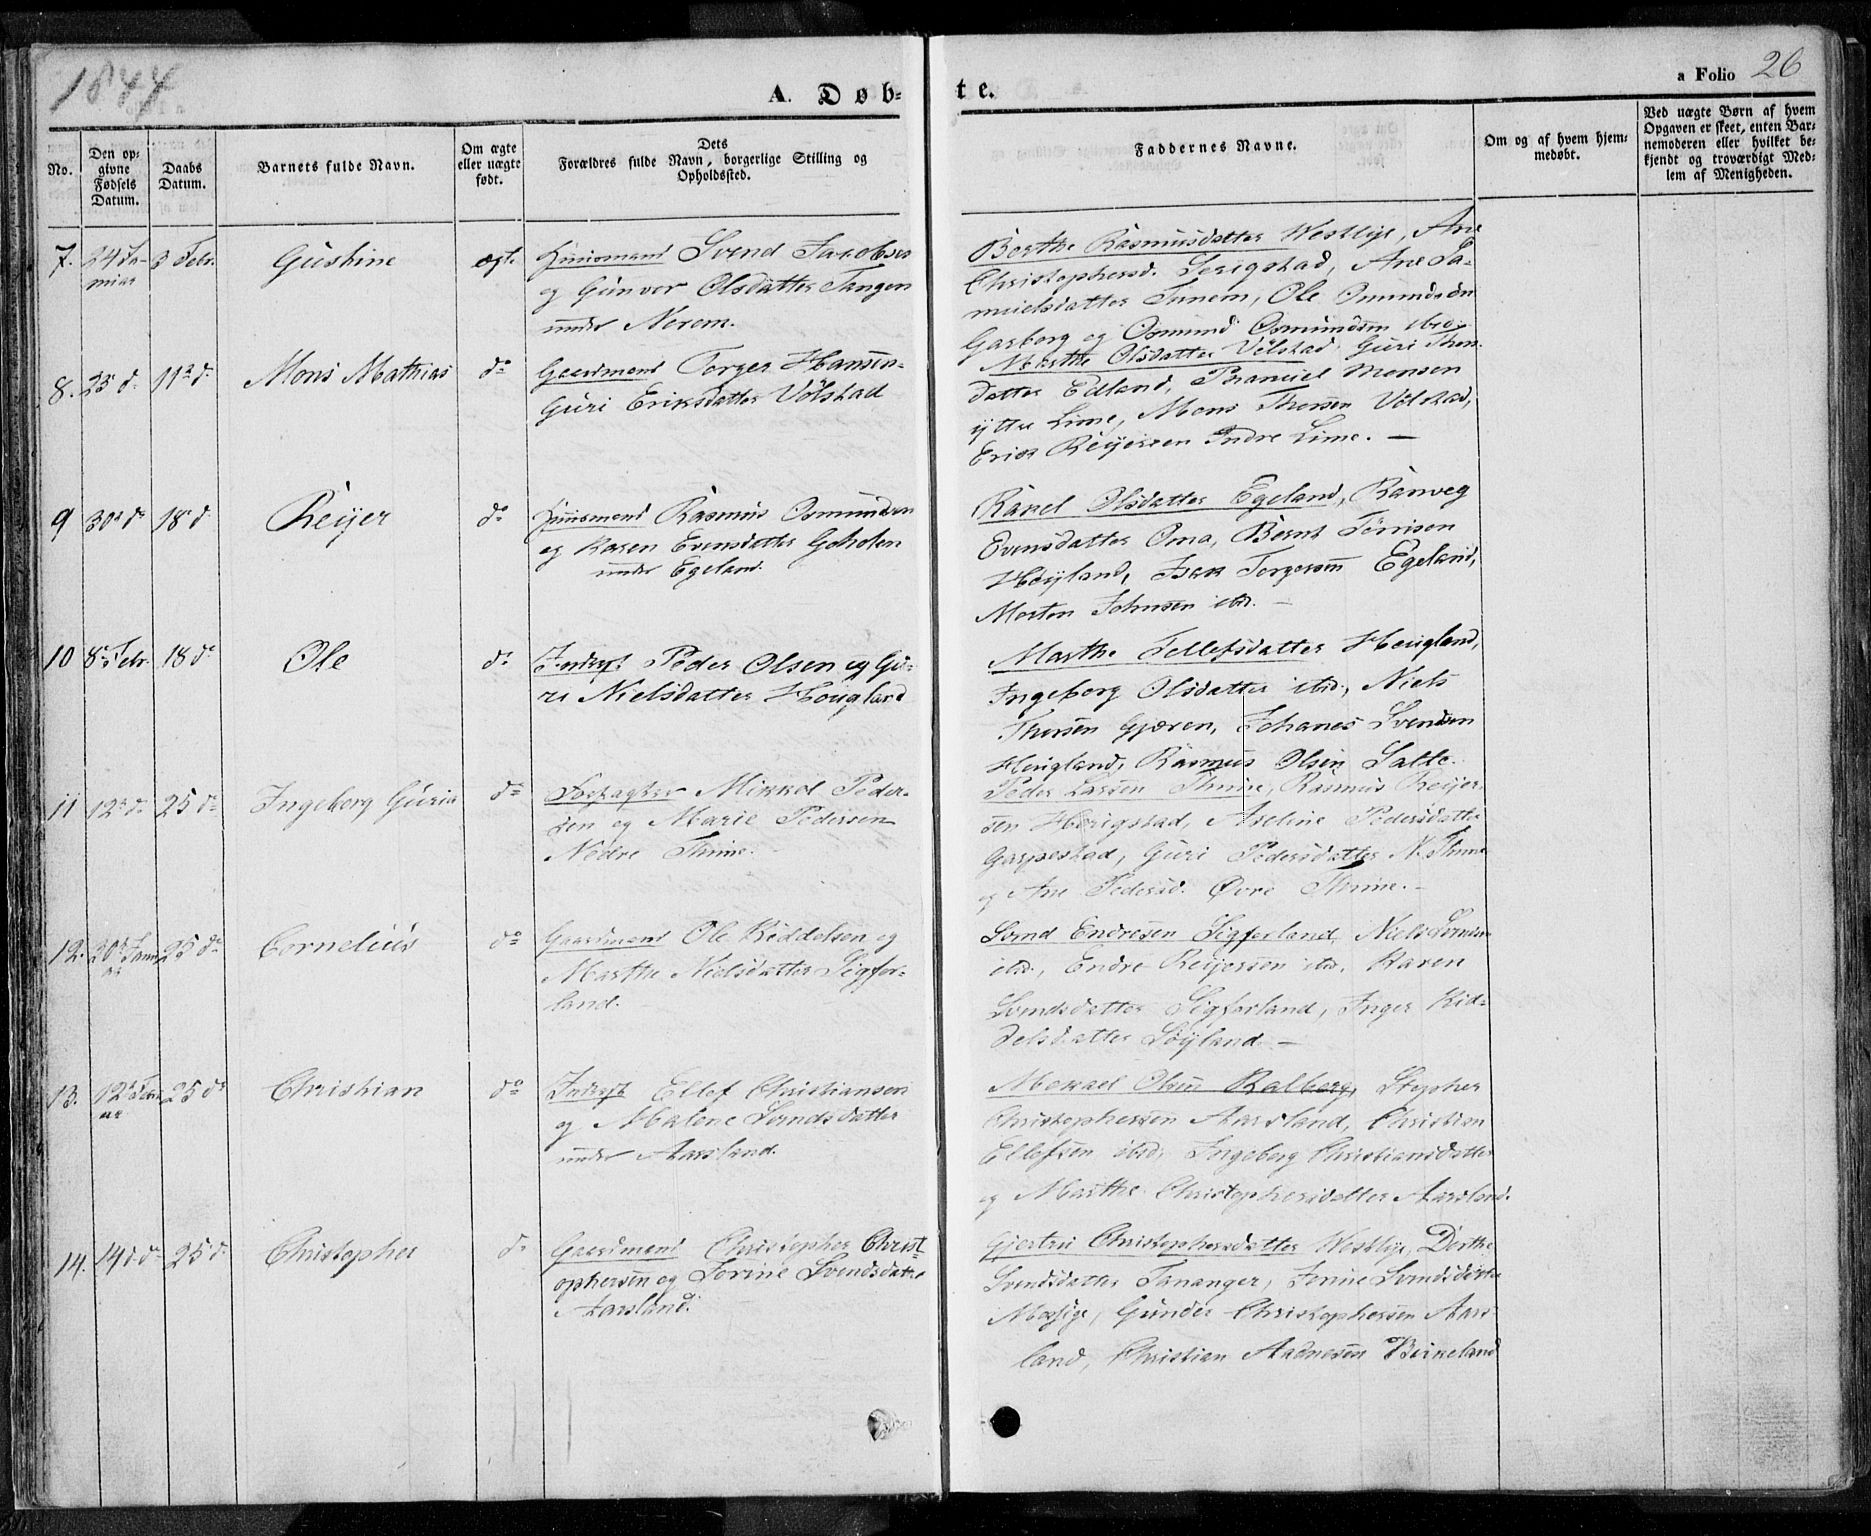 1844
A. Døb-
te.
a Folio 26
No.
Den op-
givne
Fødsels
Datum.
Daabs
Datum.
Barnets fulde Navn.
Om ægte
eller uægte
født.
Dets
Forældres fulde Navn, borgerlige Stilling og
Opholdssted.
Faddernes Navne.
Om og af hvem hjem-
medøbt.
Ved uægte Børn af hvem
Opgaven er skeet, enten Bar-
nemoderen eller hvilket be-
kjendt og troværdigt Med-
lem af Menigheden.
7. 24 Ja-
nuar
3 Febr.
Gustine
ægt.
Huusmand Svend Jacobsen
og Gunvor Olsdatter Tangen
under Nerem.
Berthe Rasmusdatter Westlye, Ane
Christophersd. Serigstad, Ane Sa-
muelsdatter Tunem, Ole Omundsen
Garborg og Osmund Osmundsen ibid.
8. 25 d. 11te d.
Mons Mathias
do
Gaardmand Torger Hansen
Guri Eriksdatter Völstad
Marthe Olsdatter Völstad, Guri Thors-
datter Edland, Monsen
ytre Lime, Mons Thorsen Völstad,
Erik Reijersen Indre Lime. —
9 30te do 18 d.
Reijer
do
Huusmand Rasmus Osmundsen
og Karen Evensdatter Goholen
under Egeland.
Ranel Olsdatter Egeland, Ranveg
Evensdatter Oma, Bernt Törrisen
Höyland, Isak Torgersen Egeland,
Morten Johnsen ibid. —
10 8 Febr. 18 do
Ole
do
Inderst Peder Olsen og Gu-
ri Nielsdatter Hougland
Marthe Tellefsdatter Hougland,
Ingeborg Olsdatter ibid., Niels
Thorsen Gjæren, Johanes Svendsen
Hougland, Rasmus Olsen Salte.
11 12te do 25 do
Ingeborg Guria
do
Forpagter Mikkel Peder-
sen og Marie Pedersen
Nedre Thime.
Peder Larsen Thime, Rasmus Reijer-
sen Hörigstad, Aseline Pedersdatter
Garpestad, Guri Pedersdatter N. Thime
og Ane Pedersd. Övre Thime. —
12. 20de Janu-
ar
25 do
Cornelius
do
Gaardmand Ole Kiddelsen og
Marthe Nielsdatter Sigfer-
land.
Svend Endresen Sigferland, Niels Svendsen
ibid., Endre Reijersen ibid., Karen
Svendsdatter Sigferland, Inger Kid-
delsdatter Löyland —
13. 12te Janu-
ar
25 do
Christian
do
Inderst Ellef Christiansen
og Malene Svendsdatter
under Aarsland.
Mikael Olsen Kalberg, Stepher
Christophersen Aarsland, Christian
Ellefsen ibid, Ingeborg Christiansdatter
og Marthe Christophersdatter Aarsland.
14. 14de do 25 d.
Christopher
do
Gaardmand Christopher Christ-
ophersen og Serine Svendsdatter
Aarsland.
Gjertru Christophersdatter Westlye, Dorthe
Svendsdatter Tananger, Serine Svendsdatter
Mossige, Gunder Christophersen Aars-
land, Christian Aadnesen Birkeland